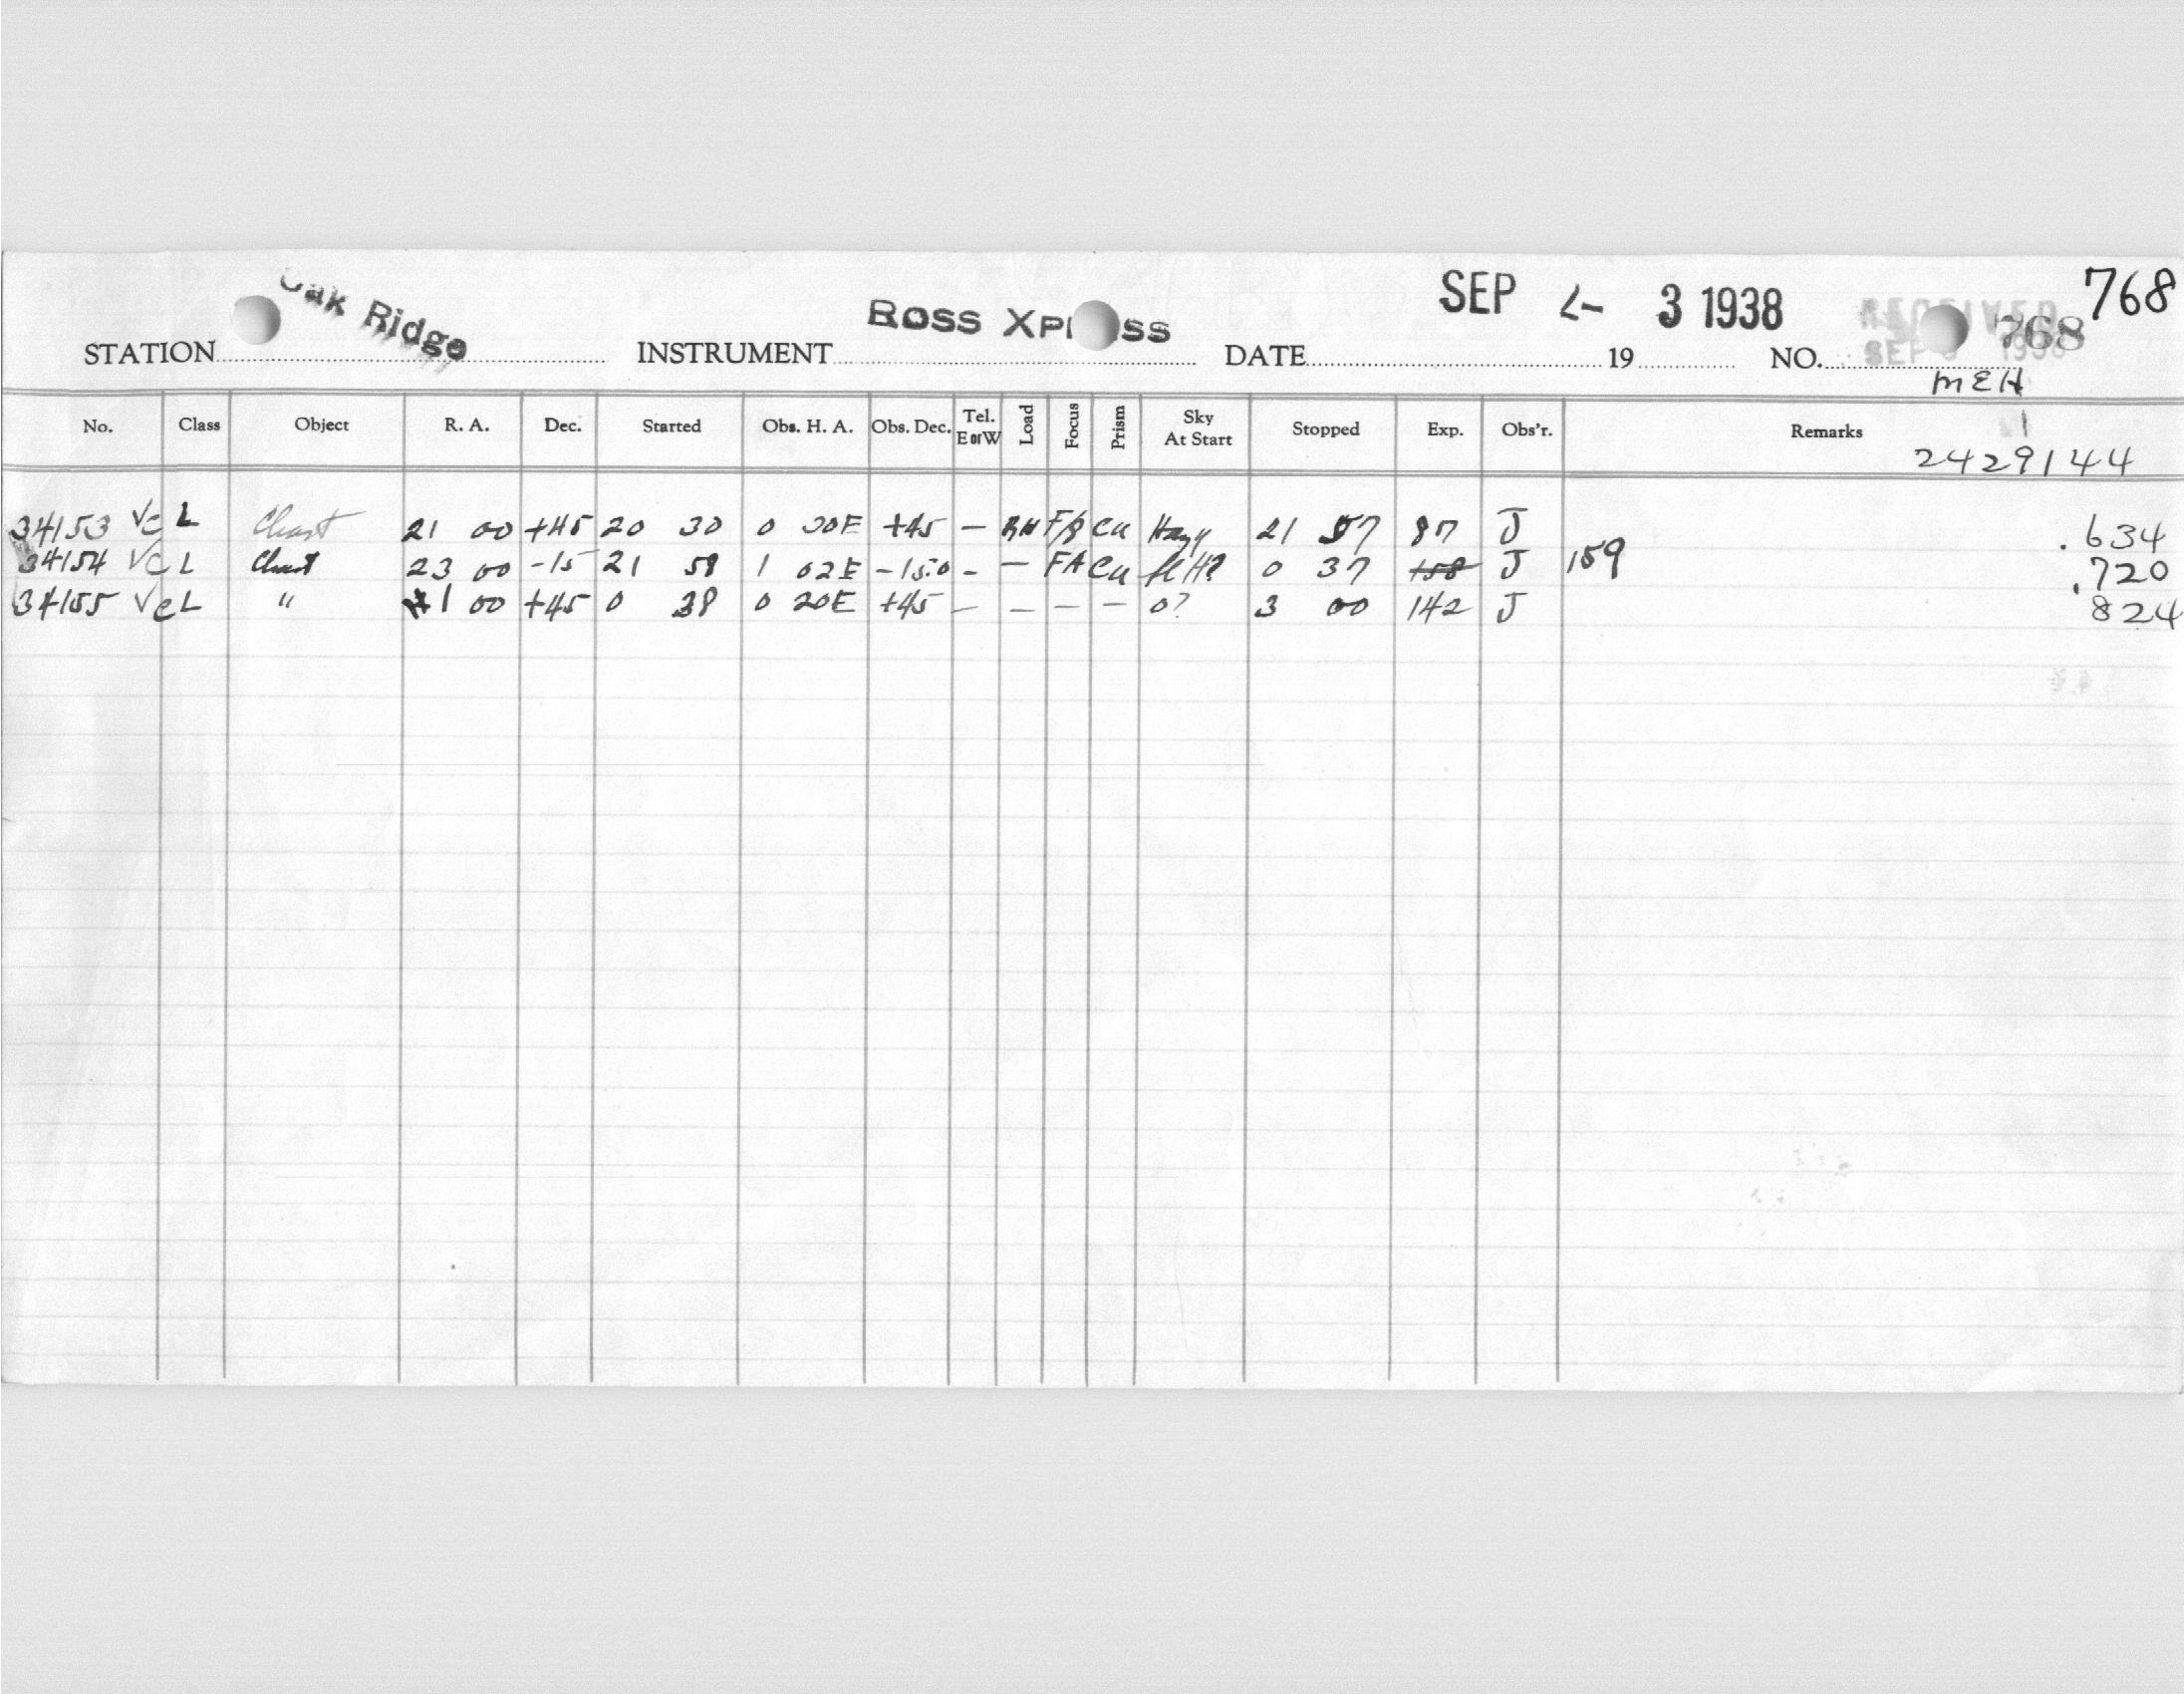 768
SEP 2- 3 1938
Oak Ridge
Ross Xpress
RECEIVED
768
SEP 1938
STATION INSTRUMENT DATE 19 NO.
MEH
No. Class Object R. A. Dec. Started Obs. H. A. Obs. Dec. Tel. E or W Load Focus Prism Sky At Start Stopped Exp. Obs'r. Remarks
2429144
34153 Vc L Chart 21 00 +45 20 30 0 E +45 - F/8 Cu Hazy 21 57 87 J .634
34154 Vc L Chart 23 00 -15 21 58 1 02E -15.0 - — FA Cu H? 0 37 158 J 159 .720
34155 Vc L " 1 00 +45 0 38 0 20E +45 — — — — 0? 3 00 142 J 824